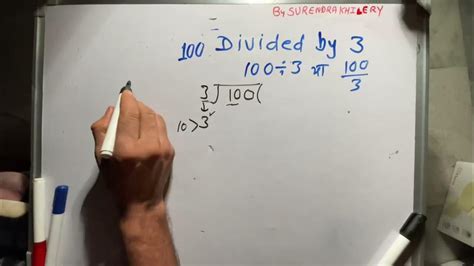 By SURENDRA KHILERY
100 Divided by 3
100÷3 या 100/3
3)100(
10>3✓